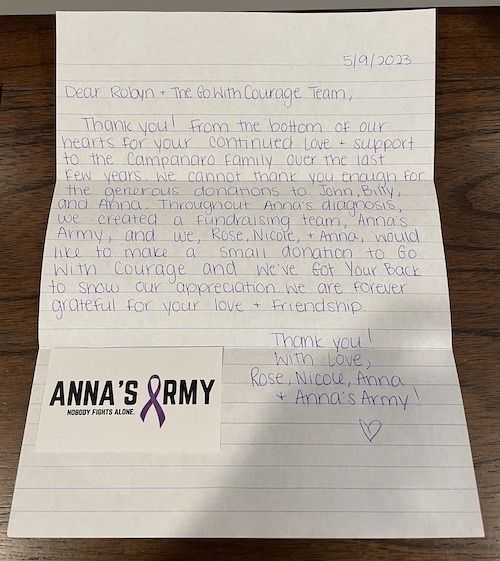 5/9/2023
Dear Robyn + The Go With Courage Team,
Thank you! From the bottom of our
hearts for your continued love + support
to the Campanaro family over the last
few years. We cannot thank you enough for
the generous donations to John, Billy,
and Anna. Throughout Anna's diagnosis,
we created a fundraising team, Anna's
Army, and we, Rose, Nicole, + Anna, would
like to make a small donation to Go
With Courage and We've Got Your Back
to show our appreciation. We are forever
grateful for your love + friendship.
Thank you!
With Love,
Rose, Nicole, Anna
+ Anna's Army!
ANNA'S ARMY
NOBODY FIGHTS ALONE.